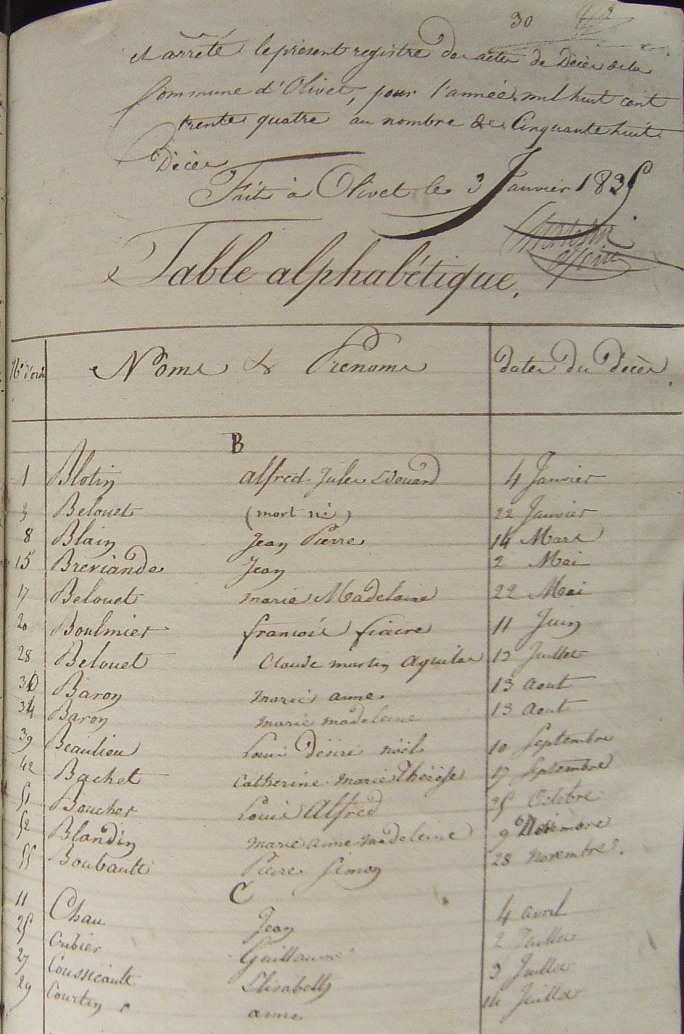 30
et arrêté le présent registre des actes de Décès de la
Commune d'Olivet, pour l'année mil huit cent
trente quatre au nombre de Cinquante huit
Décès
Fait à Olivet le 3 Janvier 1835
Table alphabétique.
Noms & Prenoms dates du Décès.
B
1 Blotin alfred Jules Edouard 4 Janvier
3 Belouet (mort né) 22 Janvier
8 Blain Jean Pierre 14 Mars
15 Breviande Jean 2 Mai
17 Belouet marie Madelaine 22 Mai
20 Boulmier francois fiacre 11 Juin
28 Belouet Claude martin aquilas 13 Juillet
Baron marie anne 13 aout
34 Baron marie madeleine 13 aout
39 Beaulieu Louis désiré noël 10 Septembre
42 Bachet Catherine marie thérèse 17 Septembre
51 Boucher Louis Alfred 25 Octobre
52 Blandin marie anne madeleine 9
55 Boubault Pierre Simon 28 novembre.
C
11 Chau Jean 4 avril
25 Cubier Guillaume 2 Juillet
27 Coussicault Elisabeth 3 Juillet
29 Courtin anne 14 Juillet